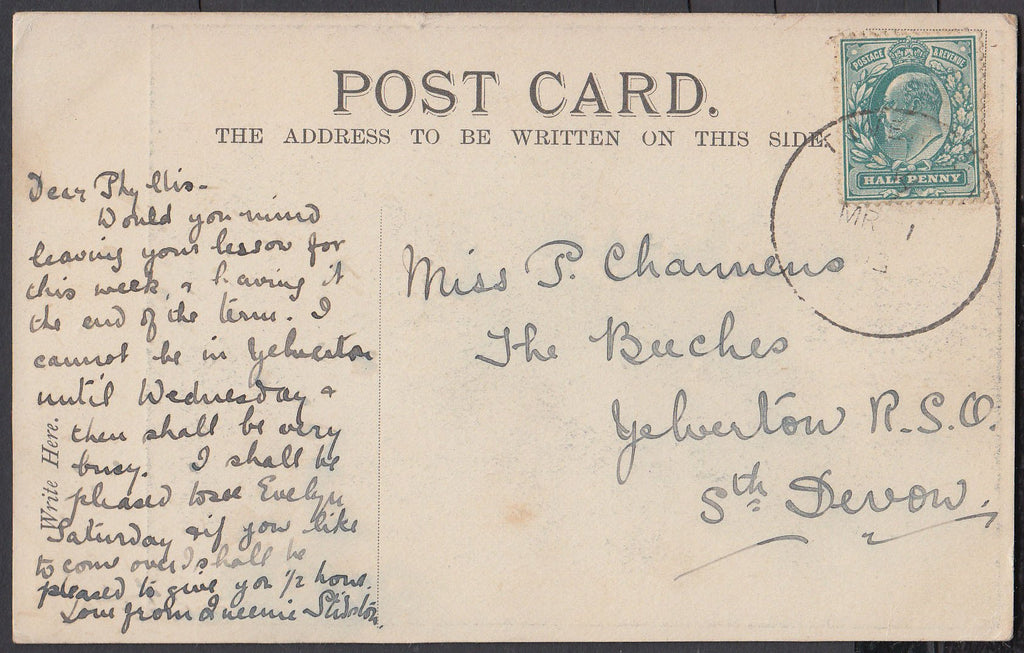 POST CARD.
THE ADDRESS TO BE WRITTEN ON THIS SIDE.
POSTAGE & REVENUE
HALFPENNY
MR 1
Write Here.
Dear Phyllis-
Would you mind
leaving your lesson for
this week, & having it
the end of the term. I
cannot be in Yelverton
until Wednesday &
then shall be very
busy. I shall be
pleased to see Evelyn
Saturday & if you like
to come over I shall be
pleased to give you 1/2 hour.
Love from Queenie
Miss P.
The Beeches
Yelverton R.S.O.
Sth Devon.